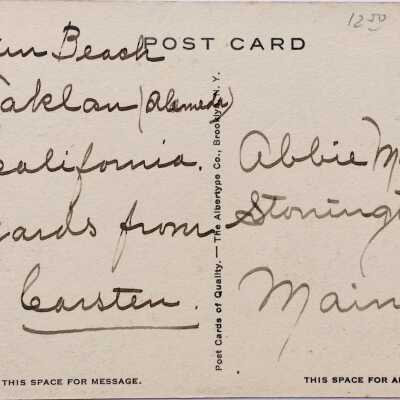 12.50
POST CARD
Beach
(Alameda)
California.
from
Carsten.
Post Cards of Quality. — The Albertype Co., Brooklyn, N. Y.
Abbie M
Stoningt
Main
THIS SPACE FOR MESSAGE.
THIS SPACE FOR A